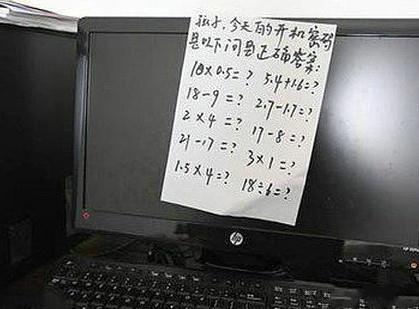 今天的开机密码
是以下问题正确答案:
10×0.5=? 5.4+1.6=?
18-9=? 2.7-1.7=?
2×4=? 17-8=?
21-17=? 3×1=?
1.5×4=? 18÷6=?
hp